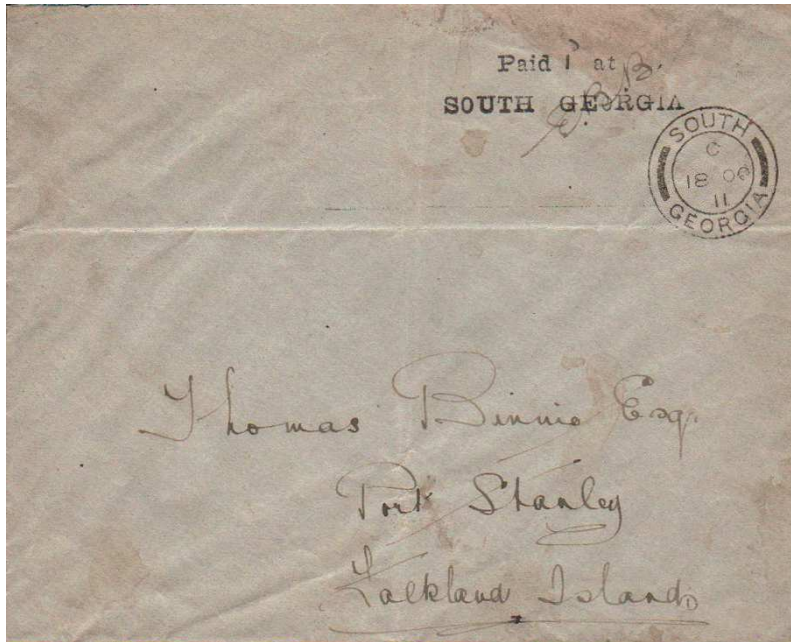 Paid 1 at
SOUTH GEORGIA
E.B.B.
SOUTH
C
18 OC
11
GEORGIA
Thomas Binnie Esq.
Port Stanley
Falkland Islands